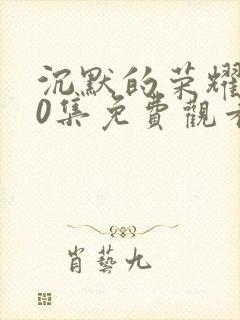 沉默的荣耀
0集免費觀看
肖藝九